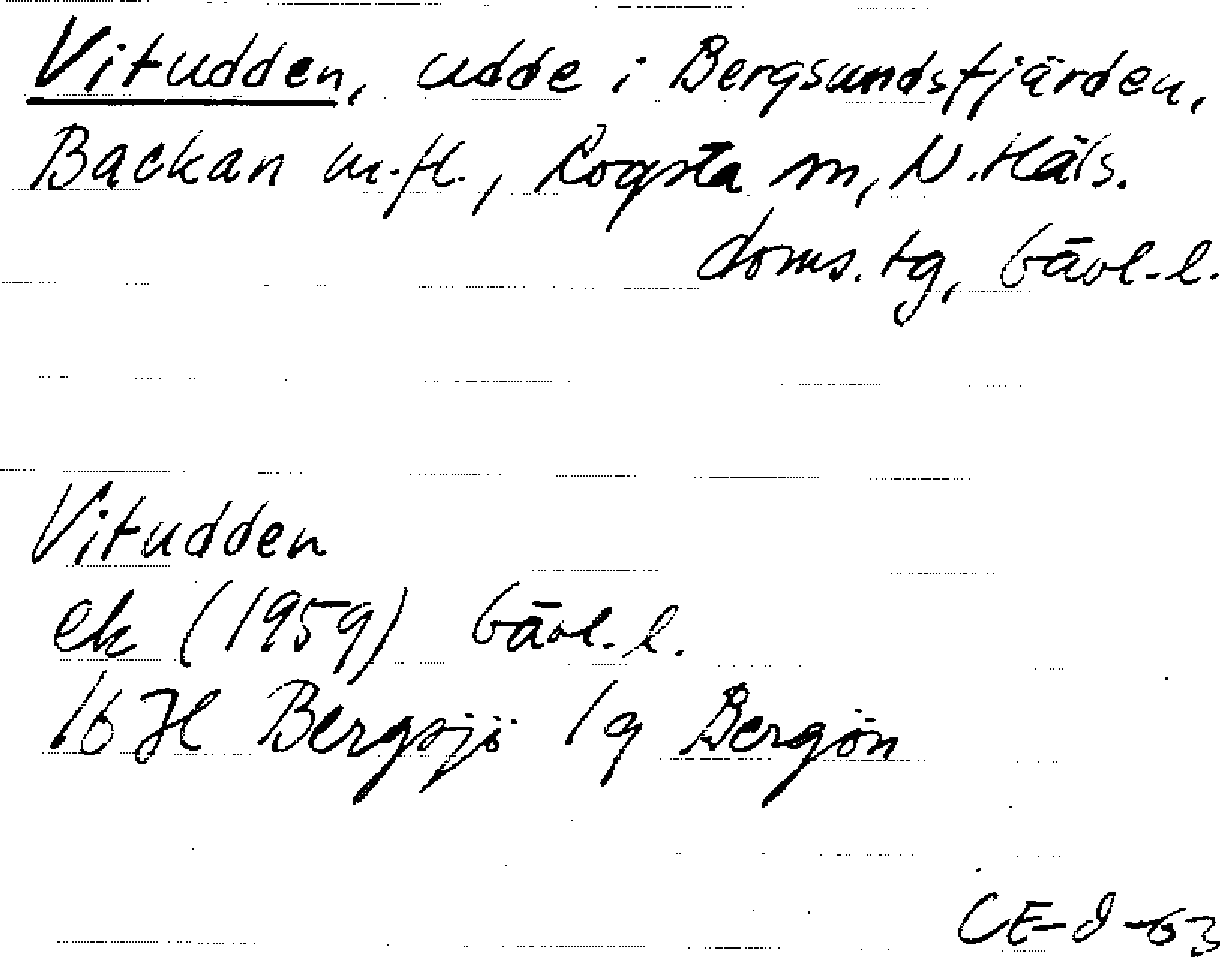 Vitudden, udde i Bergsundsfjärden,
Backan m.fl., Rogsta sn, N.Häls.
doms.tg, Gävl.l.
Vitudden
ek (1959) Gävl.l.
16 H Bergsjö 1g Bergön
CE-D-63